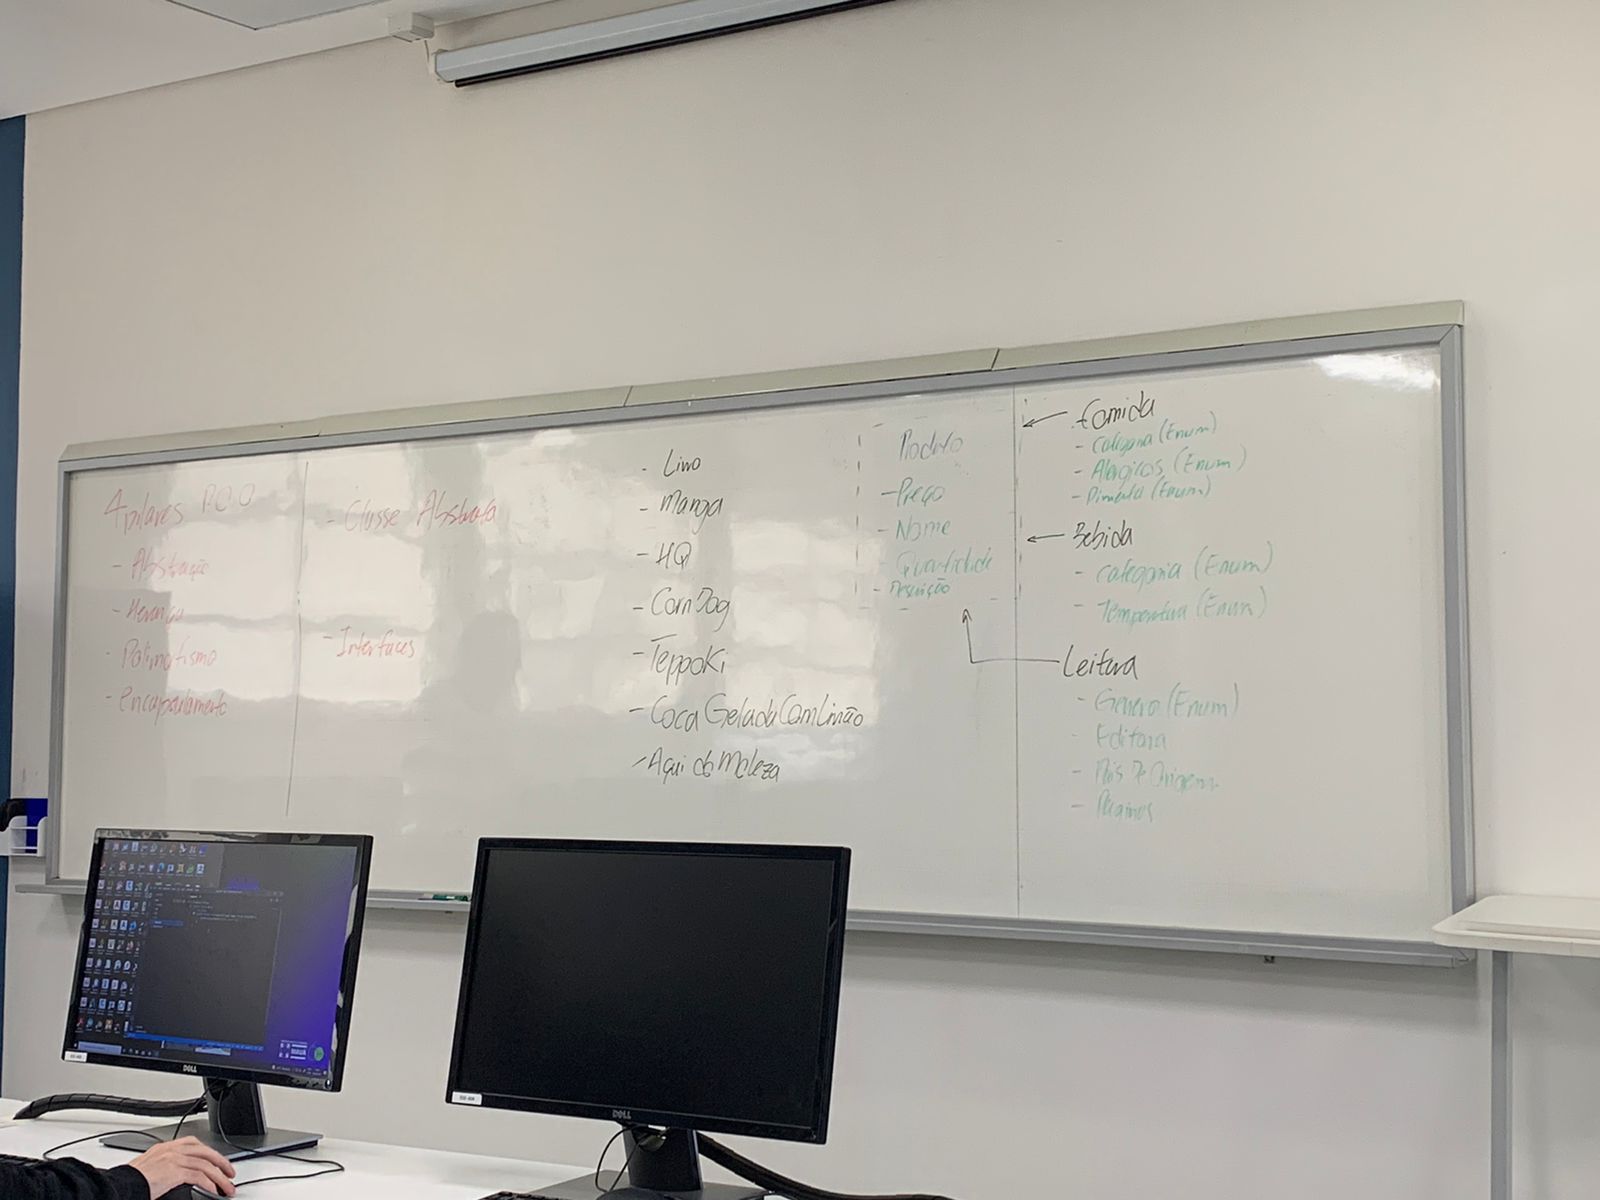 4 pilares POO
- Abstração
- Herança
- Polimorfismo
- encapsulamento
- Classe Abstrata
- Interfaces
- Livro
- Manga
- HQ
- CornDog
- Teppoki
- Coca Gelada Com Limão
- Aqui da Moleza
Produto
- Preço
- Nome
- Quantidade
- Descrição
Comida
- categoria (Enum)
- Alergicos (Enum)
- Pimenta (Enum)
Bebida
- categoria (Enum)
- Temperatura (Enum)
Leitura
- Genero (Enum)
- Editora
- Pais De Origem
- Páginas
DELL
DELL